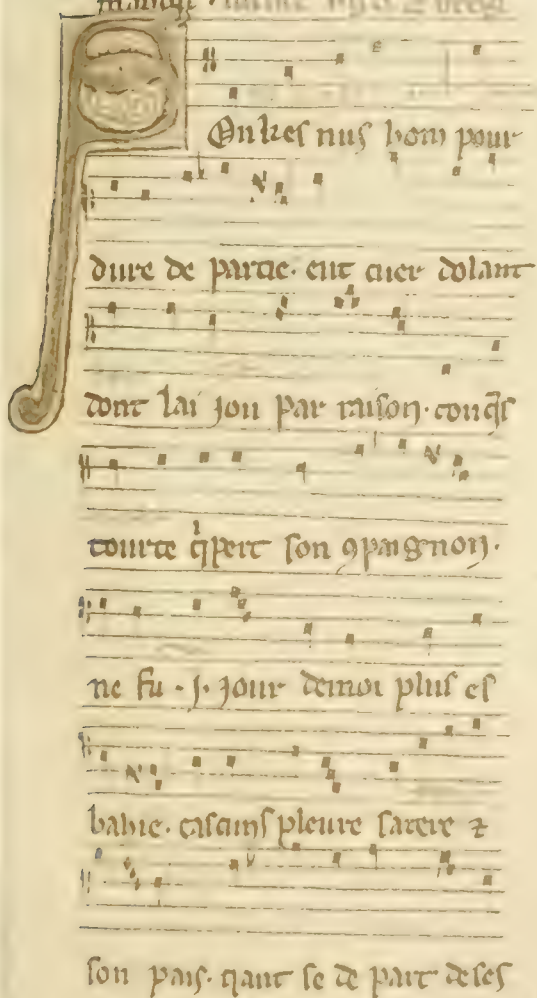 Onkes nus hom pour
dure de partie · eut cuer dolant
dont lai jou par raison · conq̄s
tourte q̍ pert son ꝯpaignon ·
ne fu · j · jour de moi plus es
bahie · cascuns pleure sa tere ⁊
son pais · qant se de part de ses